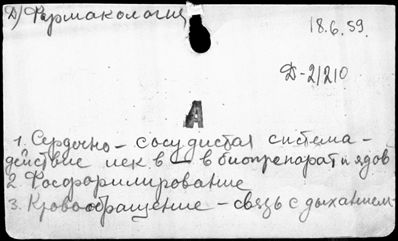 Д) Фармакология
18.6.59.
Д-2/210
А
1. Сердечно-сосудистая система -
действие лек. в-в биопрепарат и ядов
2. Фосфорилирование
3. Кровообращение - связь с дыханием.